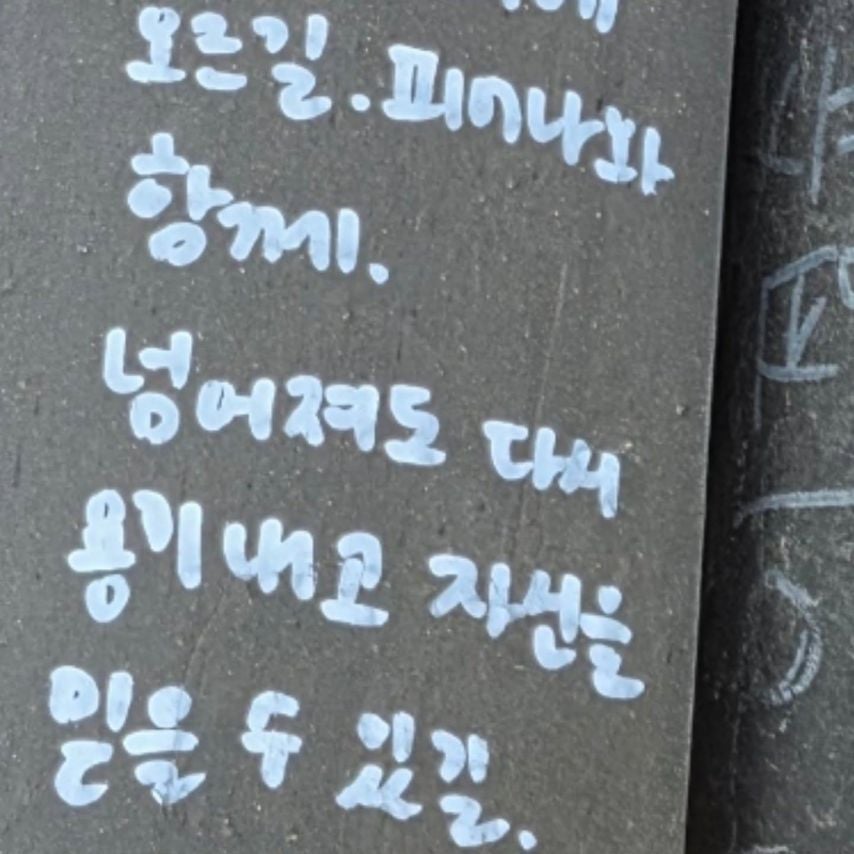 오르길.
함께.
넘어져도 다시
용기 내고 자신을
믿을 수 있길.